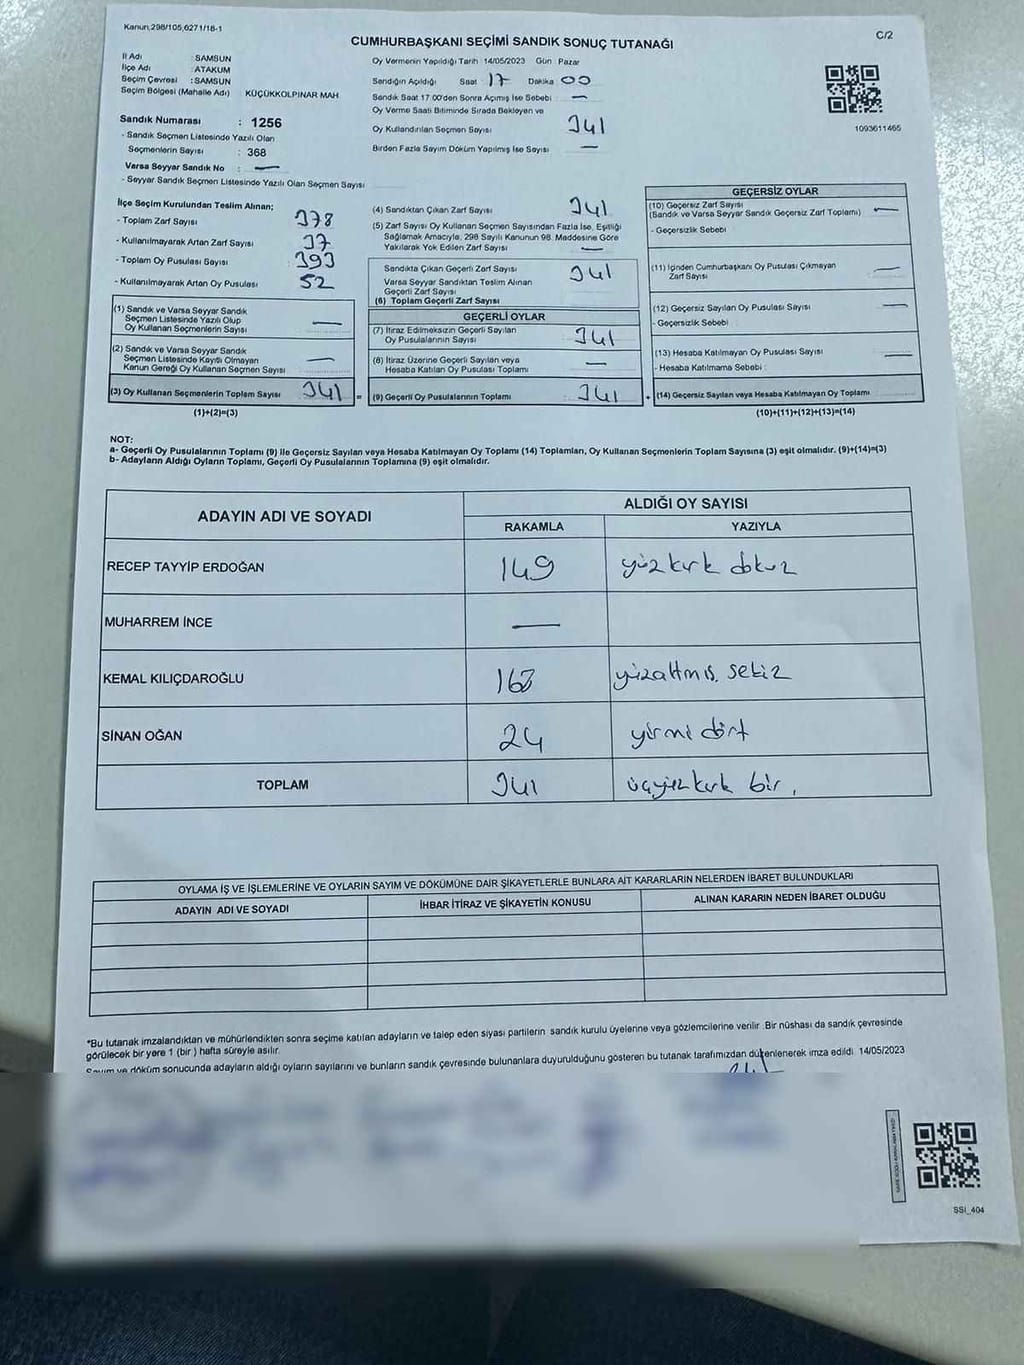 Kanun 298/105,6271/18-1
C/2
CUMHURBAŞKANI SEÇİMİ SANDIK SONUÇ TUTANAĞI
İl Adı : SAMSUN
İlçe Adı : ATAKUM
Seçim Çevresi : SAMSUN
Seçim Bölgesi (Mahalle Adı) KÜÇÜKKOLPINAR MAH
Sandık Numarası : 1256
- Sandık Seçmen Listesinde Yazılı Olan
Seçmenlerin Sayısı : 368
Varsa Seyyar Sandık No : —
- Seyyar Sandık Seçmen Listesinde Yazılı Olan Seçmen Sayısı
Oy Vermenin Yapıldığı Tarih 14/05/2023 Gün : Pazar
Sandığın Açıldığı Saat 17 Dakika 00
Sandık Saat 17.00'den Sonra Açımış İse Sebebi : —
Oy Verme Saati Bitiminde Sırada Bekleyen ve
Oy Kullandırılan Seçmen Sayısı 341
Birden Fazla Sayım Döküm Yapılmış İse Sayısı —
1093611465
İlçe Seçim Kurulundan Teslim Alınan;
- Toplam Zarf Sayısı 378
- Kullanılmayarak Artan Zarf Sayısı 37
- Toplam Oy Pusulası Sayısı : 393
- Kullanılmayarak Artan Oy Pusulası 52
(1) Sandık ve Varsa Seyyar Sandık
Seçmen Listesinde Yazılı Olup
Oy Kullanan Seçmenlerin Sayısı —
(2) Sandık ve Varsa Seyyar Sandık
Seçmen Listesinde Kayıtlı Olmayan
Kanun Gereği Oy Kullanan Seçmen Sayısı —
(3) Oy Kullanan Seçmenlerin Toplam Sayısı 341
(1)+(2)=(3)
(4) Sandıktan Çıkan Zarf Sayısı 341
(5) Zarf Sayısı Oy Kullanan Seçmen Sayısından Fazla İse, Eşitliği
Sağlamak Amacıyla, 298 Sayılı Kanunun 98. Maddesine Göre
Yakılarak Yok Edilen Zarf Sayısı —
Sandıkta Çıkan Geçerli Zarf Sayısı 341
Varsa Seyyar Sandıktan Teslim Alınan
Geçerli Zarf Sayısı
(6) Toplam Geçerli Zarf Sayısı
GEÇERLİ OYLAR
(7) İtiraz Edilmeksizin Geçerli Sayılan
Oy Pusulalarının Sayısı 341
(8) İtiraz Üzerine Geçerli Sayılan veya
Hesaba Katılan Oy Pusulası Toplamı —
= (9) Geçerli Oy Pusulalarının Toplamı : 341
GEÇERSİZ OYLAR
(10) Geçersiz Zarf Sayısı
(Sandık ve Varsa Seyyar Sandık Geçersiz Zarf Toplamı) —
- Geçersizlik Sebebi :
(11) İçinden Cumhurbaşkanı Oy Pusulası Çıkmayan
Zarf Sayısı —
(12) Geçersiz Sayılan Oy Pusulası Sayısı —
- Geçersizlik Sebebi :
(13) Hesaba Katılmayan Oy Pusulası Sayısı —
- Hesaba Katılmama Sebebi :
+ (14) Geçersiz Sayılan veya Hesaba Katılmayan Oy Toplamı
(10)+(11)+(12)+(13)=(14)
NOT:
a- Geçerli Oy Pusulalarının Toplamı (9) ile Geçersiz Sayılan veya Hesaba Katılmayan Oy Toplamı (14) Toplamları, Oy Kullanan Seçmenlerin Toplam Sayısına (3) eşit olmalıdır. (9)+(14)=(3)
b- Adayların Aldığı Oyların Toplamı, Geçerli Oy Pusulalarının Toplamına (9) eşit olmalıdır.
ADAYIN ADI VE SOYADI ALDIĞI OY SAYISI
RAKAMLA YAZIYLA
RECEP TAYYİP ERDOĞAN 149 yüzkırk dokuz
MUHARREM İNCE —
KEMAL KILIÇDAROĞLU 168 yüzaltmış sekiz
SİNAN OĞAN 24 yirmi dört
TOPLAM 341 üçyüzkırk bir.
OYLAMA İŞ VE İŞLEMLERİNE VE OYLARIN SAYIM VE DÖKÜMÜNE DAİR ŞİKAYETLERLE BUNLARA AİT KARARLARIN NELERDEN İBARET BULUNDUKLARI
ADAYIN ADI VE SOYADI İHBAR İTİRAZ VE ŞİKAYETİN KONUSU ALINAN KARARIN NEDEN İBARET OLDUĞU
*Bu tutanak imzalandıktan ve mühürlendikten sonra seçime katılan adayların ve talep eden siyasi partilerin sandık kurulu üyelerine veya gözlemcilerine verilir. Bir nüshası da sandık çevresinde
görülecek bir yere 1 (bir ) hafta süreyle asılır.
Sayım ve döküm sonucunda adayların aldığı oyların sayılarını ve bunların sandık çevresinde bulunanlara duyurulduğunu gösteren bu tutanak tarafımızdan düzenlenerek imza edildi. 14/05/2023
SSI_404